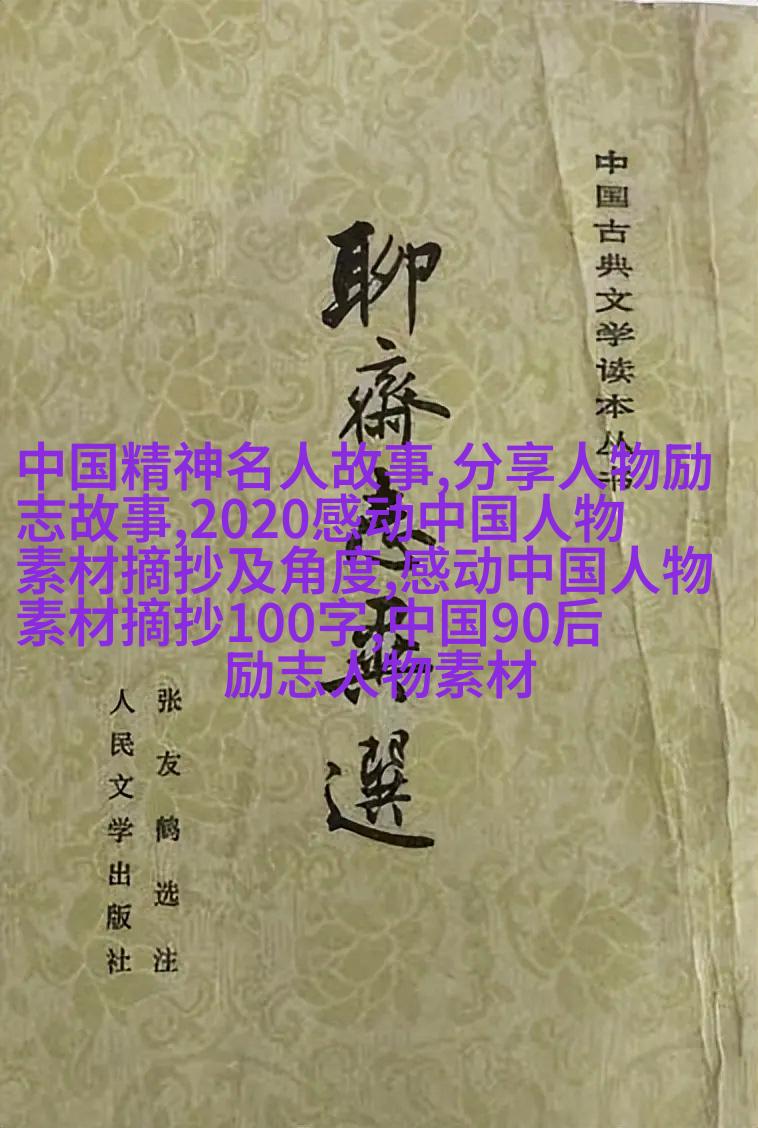 中国古典文学读本丛书
聊齋志異選
张友鹤选注
人民文学出版社
中国精神名人故事,分享人物励
志故事,2020感动中国人物
素材摘抄及角度,感动中国人物
素材摘抄100字,中国90后
励志人物素材